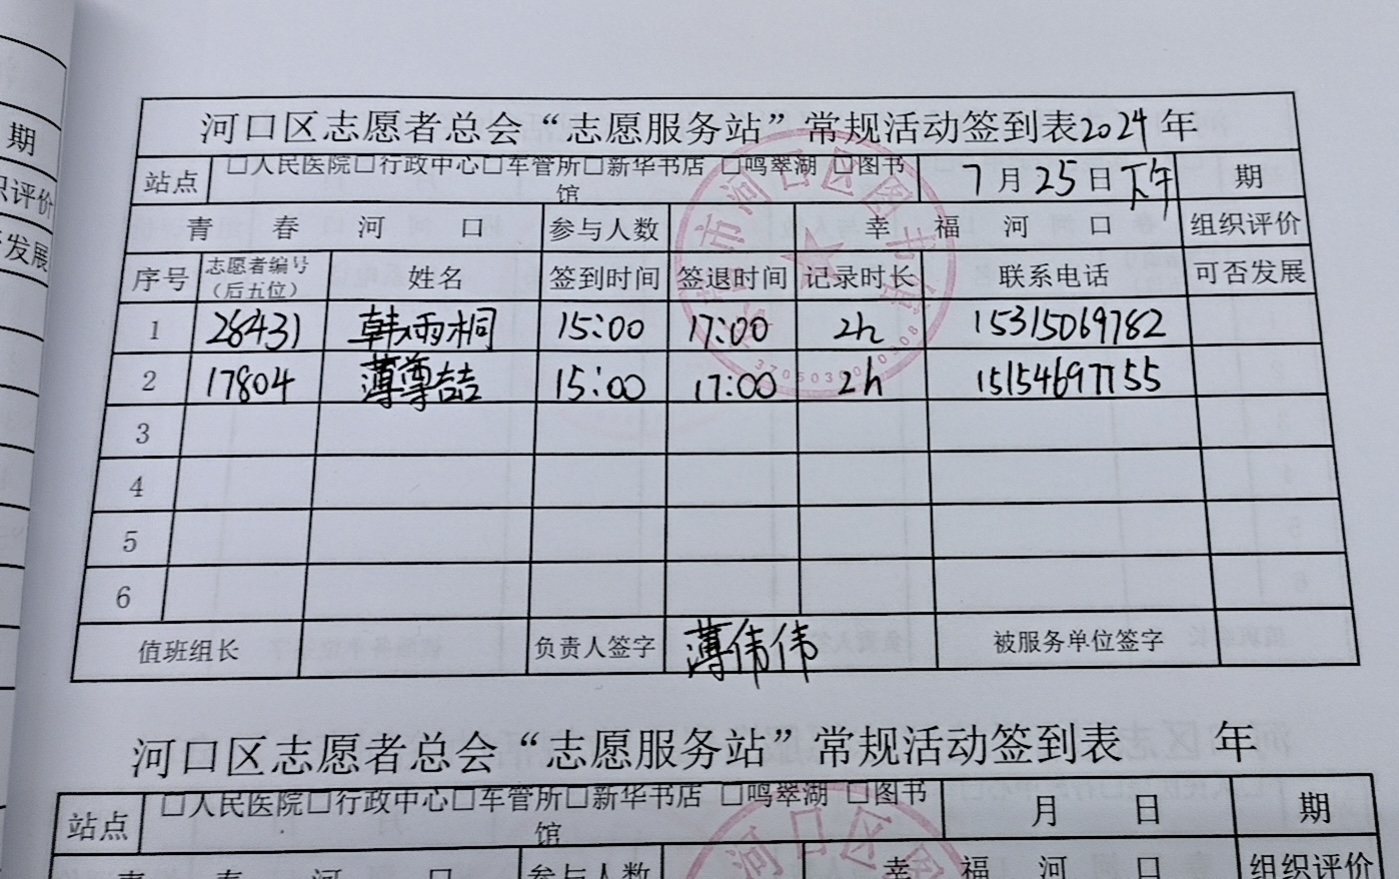 期
织评价
发展
河口区志愿者总会“志愿服务站”常规活动签到表2024年
站点 □人民医院□行政中心□车管所□新华书店 □鸣翠湖 □图书馆 7月25日下午 期
青春河口 参与人数 幸福河口 组织评价
序号 志愿者编号（后五位） 姓名 签到时间 签退时间 记录时长 联系电话 可否发展
1 28431 韩雨桐 15:00 17:00 2h 15315069782
2 17804 薄尊喆 15:00 17:00 2h 15154697155
3
4
5
6
值班组长 负责人签字 薄伟伟 被服务单位签字
河口区志愿者总会“志愿服务站”常规活动签到表 年
站点 □人民医院□行政中心□车管所□新华书店 □鸣翠湖 □图书馆 月 日 期
青春河口 参与人数 幸福河口 组织评价